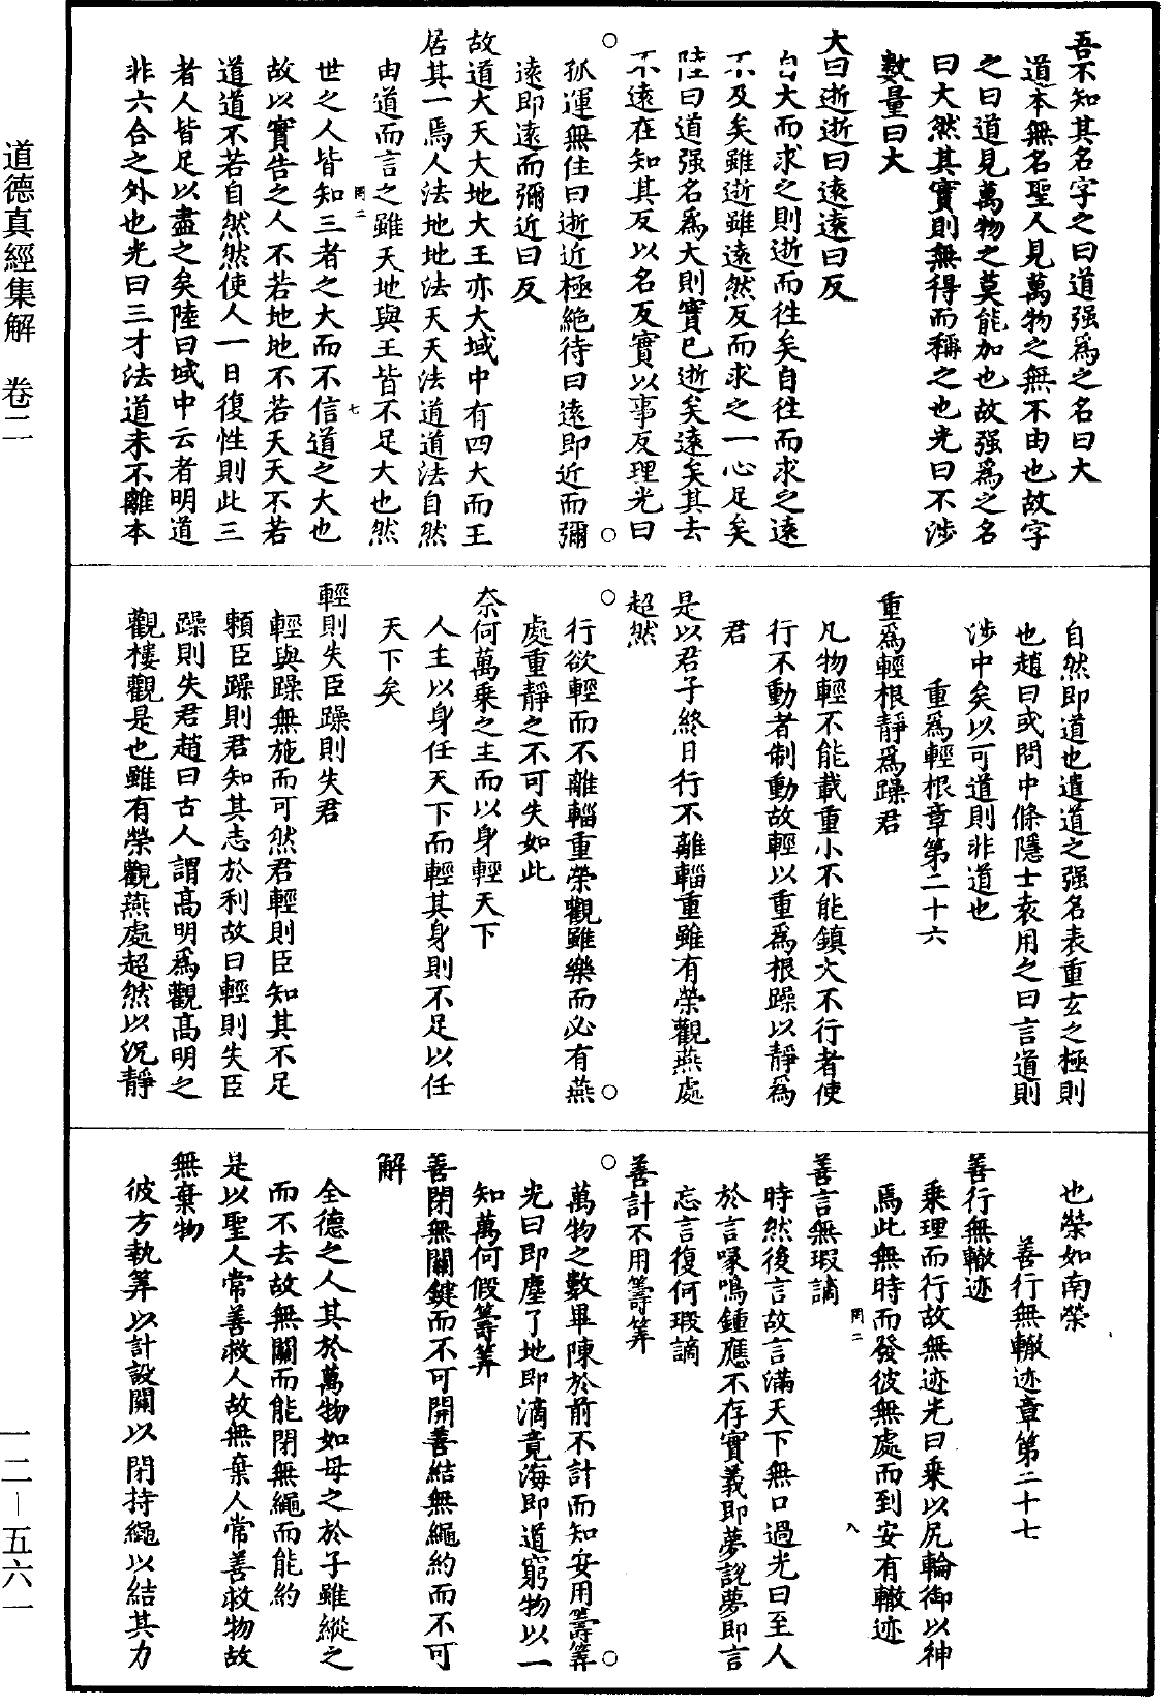 吾不知其名字之曰道强爲之名曰大
道本無名聖人見萬物之無不由也故字
之曰道見萬物之莫能加也故强爲之名
曰大然其實則無得而稱之也光曰不涉
數量曰大
大曰逝逝曰遠遠曰反
自大而求之則逝而往矣自往而求之遠
不及矣雖逝雖遠然反而求之一心足矣
陸曰道强名爲大則實已逝矣遠矣其去
不遠在知其反以名反實以事反理光曰
孤運無住曰逝近極絶待曰遠即近而彌
遠即遠而彌近曰反
故道大天大地大王亦大域中有四大而王
居其一焉人法地地法天天法道道法自然
由道而言之雖天地與王皆不足大也然
罔二
七
世之人皆知三者之大而不信道之大也
故以實告之人不若地地不若天天不若
道道不若自然然使人一日復性則此三
者人皆足以盡之矣陸曰域中云者明道
非六合之外也光曰三才法道未不離本
自然即道也遣道之强名表重玄之極則
也趙曰或問中條隱士袁用之曰言道則
涉中矣以可道則非道也
重爲輕根章第二十六
重爲輕根靜爲躁君
凡物輕不能載重小不能鎮大不行者使
行不動者制動故輕以重爲根躁以靜爲
君
是以君子終日行不離輜重雖有榮觀燕處
超然
行欲輕而不離輜重榮觀雖樂而必有燕
處重靜之不可失如此
奈何萬乘之主而以身輕天下
人主以身任天下而輕其身則不足以任
天下矣
輕則失臣躁則失君
輕與躁無施而可然君輕則臣知其不足
賴臣躁則君知其志於利故曰輕則失臣
躁則失君趙曰古人謂高明爲觀高明之
觀樓觀是也雖有榮觀燕處超然以況靜
也榮如南榮
善行無轍迹章第二十七
善行無轍迹
乘理而行故無迹光曰乘以尻輪御以神
焉此無時而發彼無處而到安有轍迹
罔二
八
善言無瑕謫
時然後言故言滿天下無口過光曰至人
於言喙鳴鍾應不存實義即夢説夢即言
忘言復何瑕謫
善計不用籌筭
萬物之數畢陳於前不計而知安用籌筭
光曰即塵了地即滴竟海即道窮物以一
知萬何假籌筭
善閉無關鍵而不可開善結無繩約而不可
解
全德之人其於萬物如母之於子雖縱之
而不去故無關而能閉無繩而能約
是以聖人常善救人故無棄人常善救物故
無棄物
彼方執筭以計設關以閉持繩以結其力
道德真經集解　卷二
一二－五六一